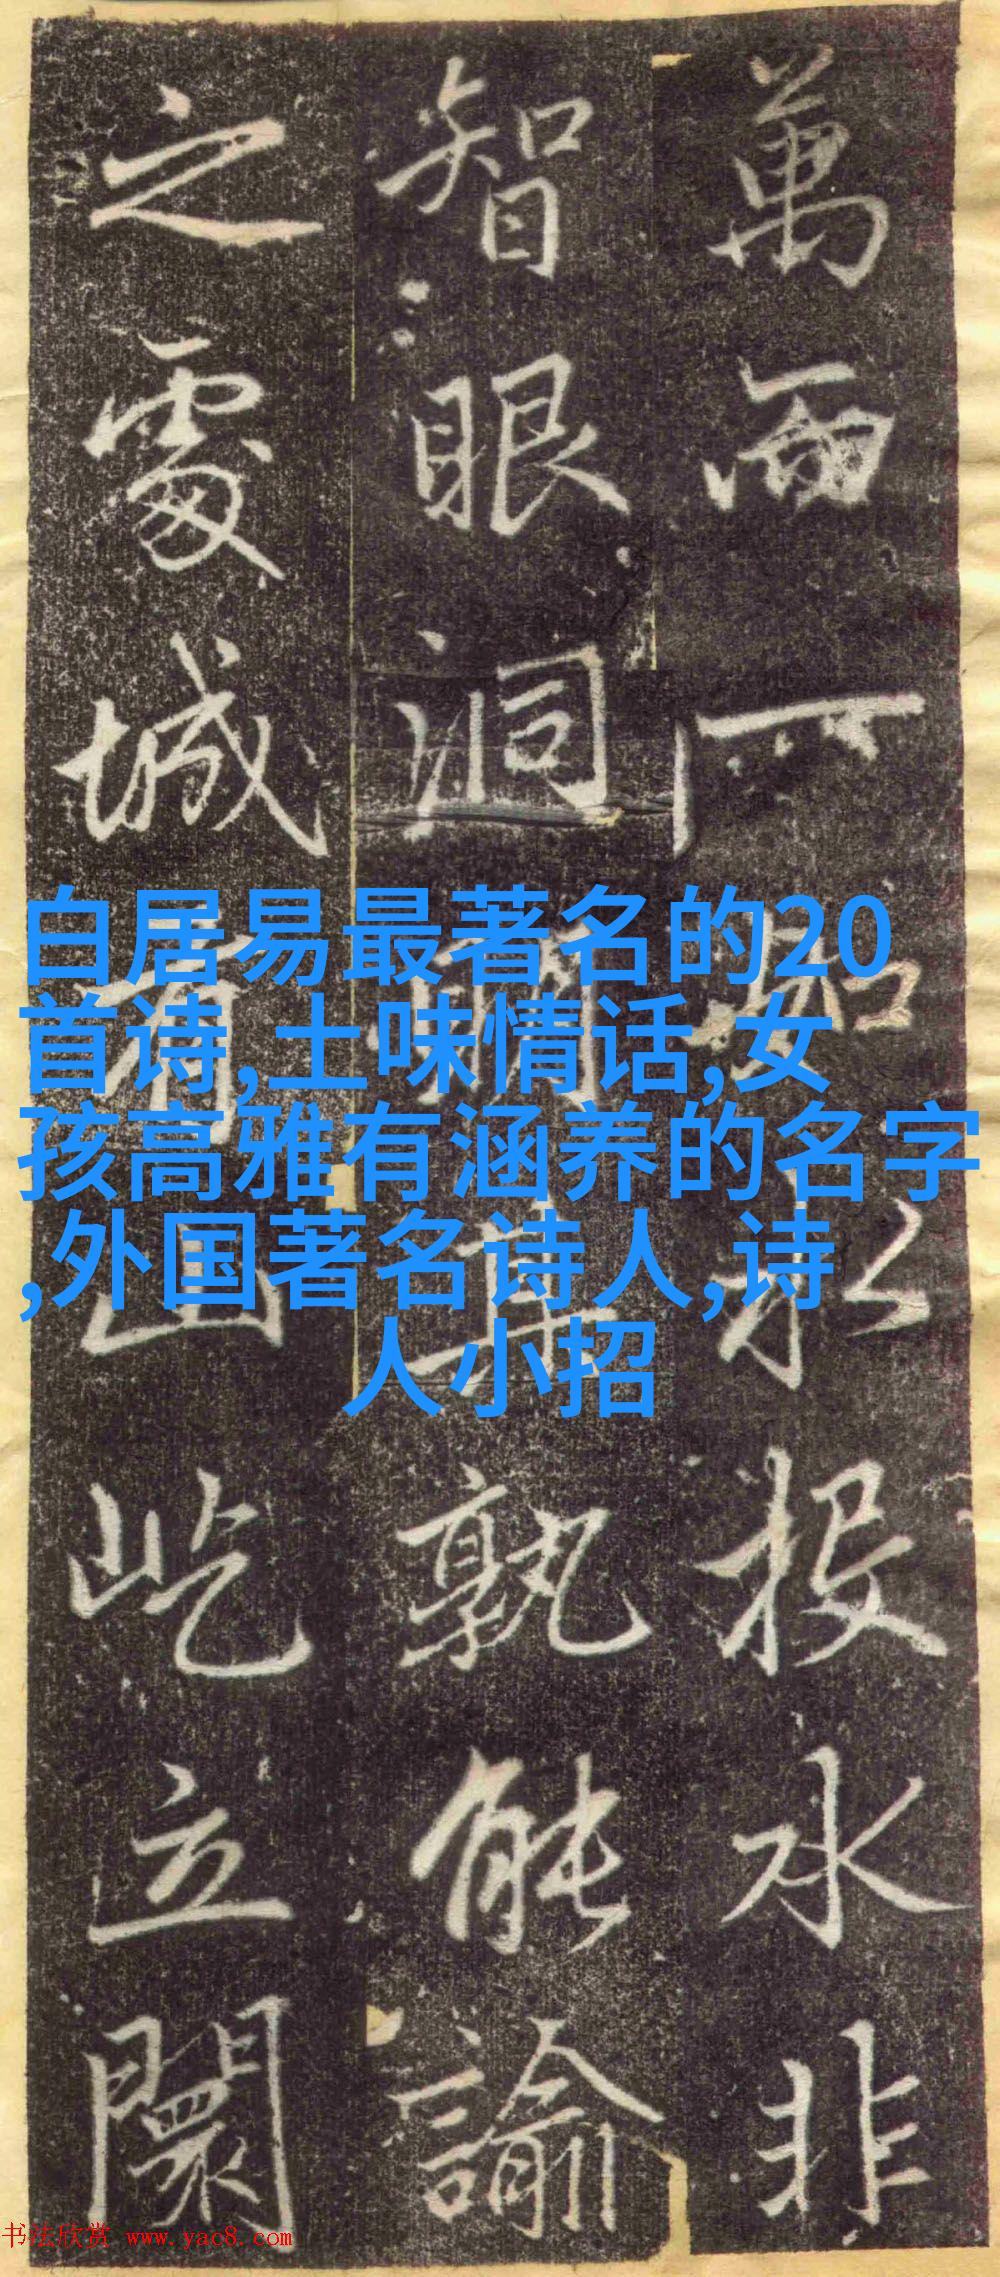 萬 一 如 投水非
智眼洞明 孰能諭
之處城有山屹立闤
白居易最著名的20
首诗,土味情话,女
孩高雅有涵养的名字
,外国著名诗人,诗
人小招
书法欣赏 www.yac8.com